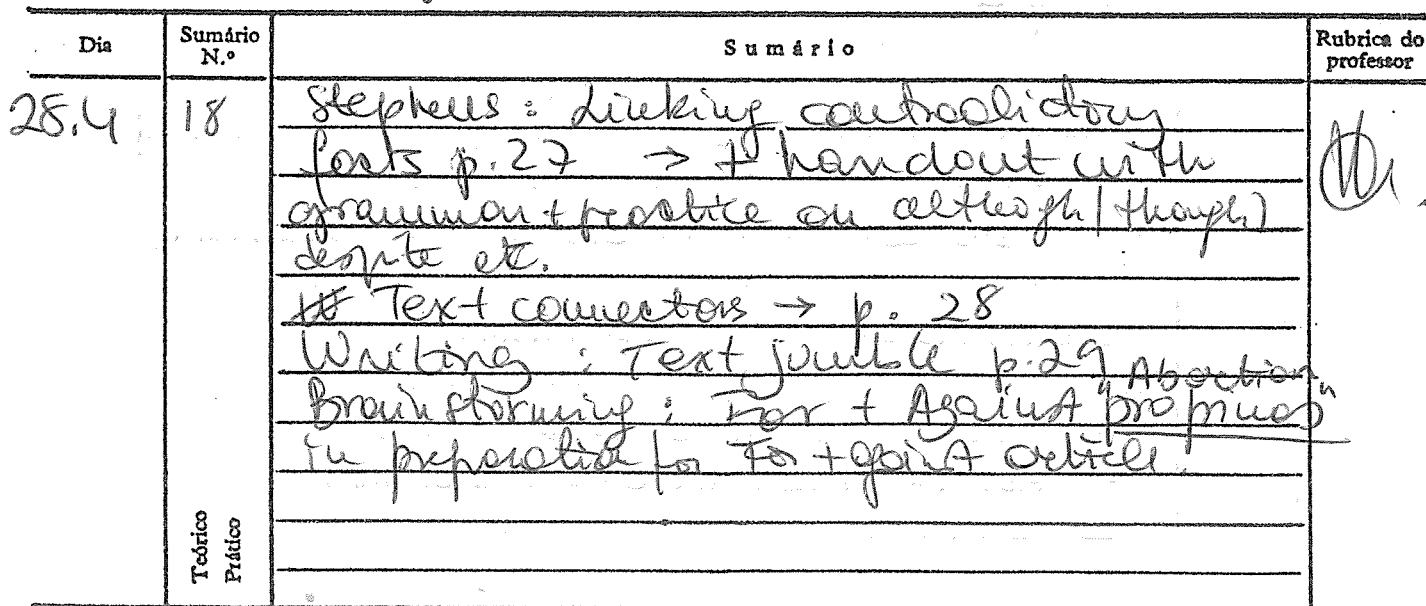 Dia
Sumário N.º
Sumário
Rubrica do professor
28.4
18
Stephens : Linking contradictory
facts p. 27 → + handout with
grammar + practice on althogh (though)
despite etc.
Text connectors → p. 28
Writing : Text jumble p. 29
Abortion
Brainstorming : For + Against "propinas"
in preparation for For + gainst article.
Teórico
Prático